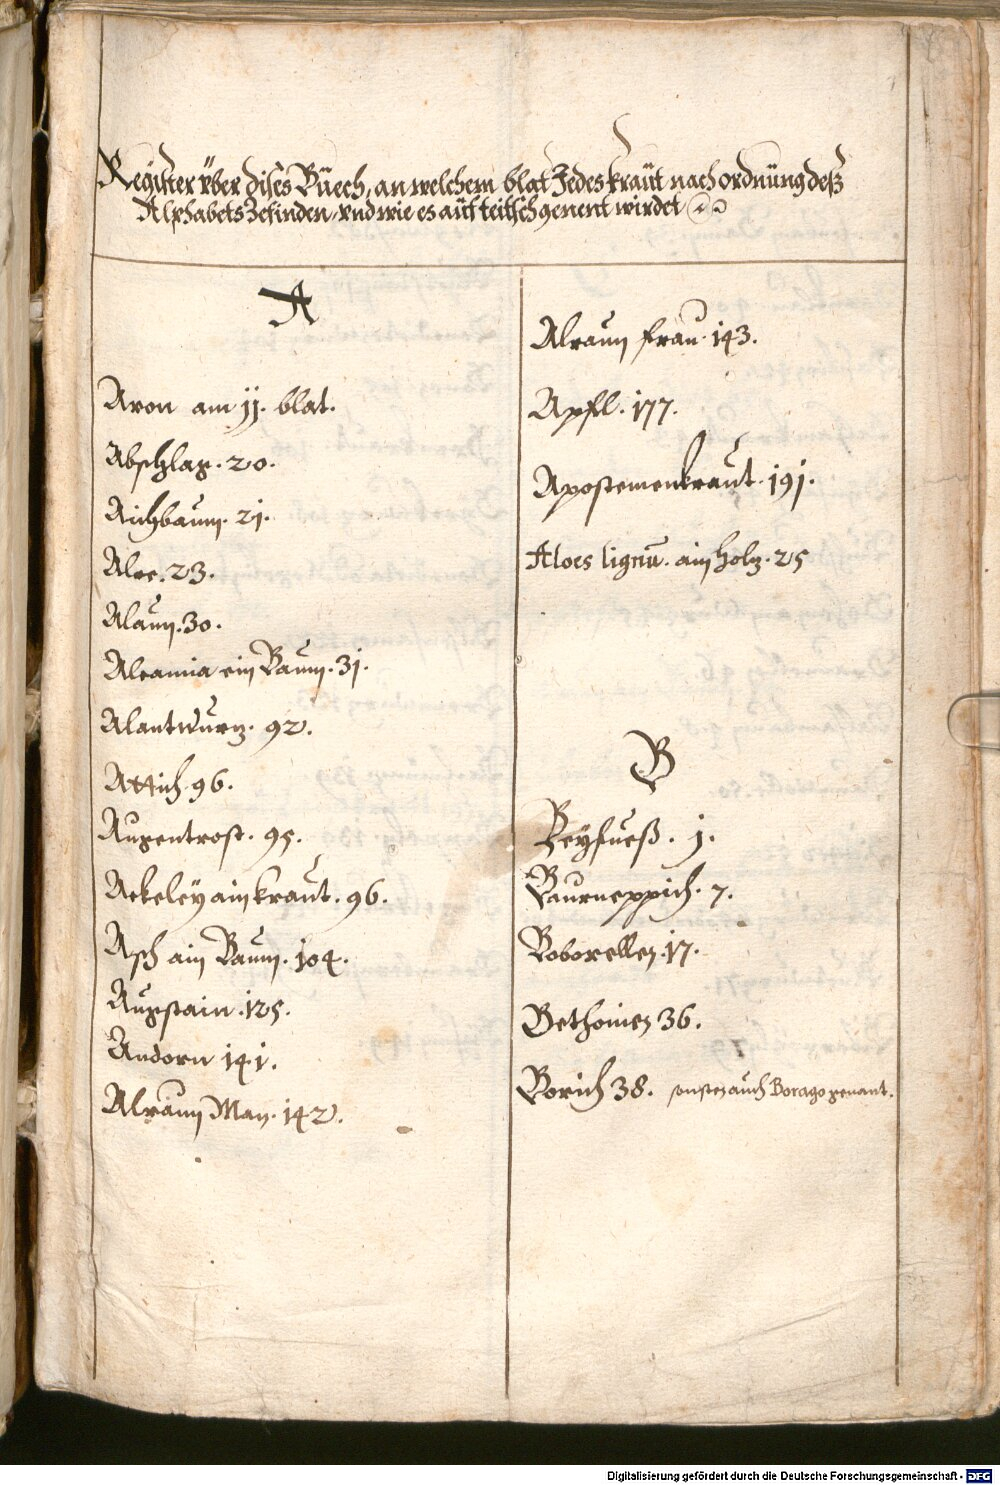 Register vber dises Büech, an welchem blat Jedes kraüt nach ordnüng deß
Alphabets Zefinden, vnd wie es aüf teitsch genent wirdet
A
Aron am jj. blat.
Abschlag. 20.
Aichbaum. 21.
Aloe. 23.
Alaun. 30.
Alcamia ein Baum. 31.
Alantwurz. 92.
Attich 96.
Augentrost. 95.
Ackeley ain kraut. 96.
Asch ain Baum. 104.
Augstain. 125.
Andorn 141.
Alraun Man. 142.
Alraun frau. 143.
Apfl. 177.
Apostemenkraut. 191.
Aloes lignū. ain holz. 25
B
Beyfueß. 1.
Baurneppich. 7.
Boborellen. 17.
Bethonien 36.
Borich 38. sonsten auch Borago genant.
Digitalisierung gefördert durch die Deutsche Forschungsgemeinschaft - DFG